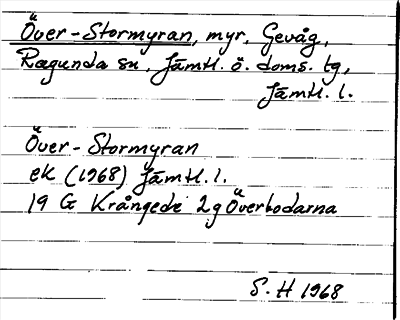 Över-Stormyran, myr, Gevåg,
Ragunda sn, Jämtl. ö. doms. tg,
Jämtl. l.
Över-Stormyran
ek (1968) Jämtl. l.
19 G Krångede 2g Överbodarna
S. H 1968